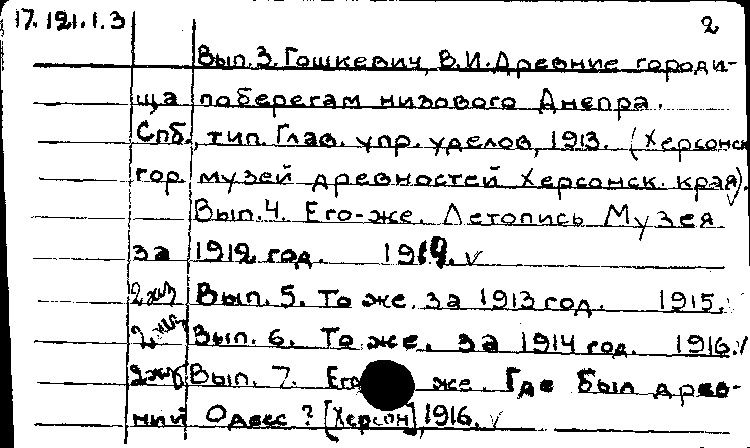 17.121.1.3 2
Вып.3. Гошкевич, В.И. Древние городи-
ща по берегам низового Днепра.
Спб., тип. Глав. упр. уделов, 1913. (Херсонск
гор. музей древностей Херсонск. края).
Вып.4. Его-же. Летопись Музея
за 1912 год. 1914. v
2 экз Вып. 5. То же за 1913 год. 1915. v
2 экз Вып. 6. То же. за 1914 год. 1916. v
2 экз Вып. 7. Его же. Где был древ-
ний Одесс? [Херсон], 1916. v